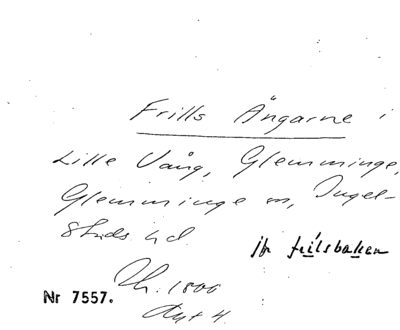 Frills Ängarne i
Lille Vång, Glemminge,
Glemminge sn, Ingel-
stads hd
jfr frilsbacken
Lh. 1800
Akt 4.
Nr 7557.